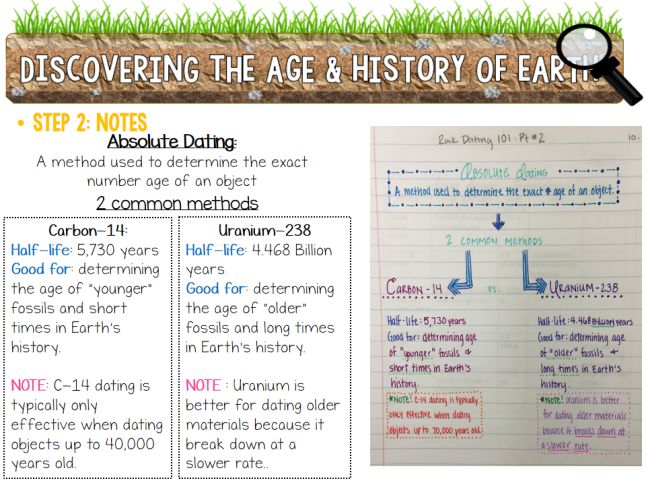 DISCOVERING THE AGE & HISTORY OF EARTH
• STEP 2: NOTES
Absolute Dating:
A method used to determine the exact
number age of an object
2 common methods
Carbon-14:
Half-life: 5,730 years
Good for: determining
the age of "younger"
fossils and short
times in Earth's
history.
NOTE: C-14 dating is
typically only
effective when dating
objects up to 40,000
years old.
Uranium-238
Half-life: 4.468 Billion
years
Good for: determining
the age of "older"
fossils and long times
in Earth's history.
NOTE : Uranium is
better for dating older
materials because it
break down at a
slower rate..
Rock Dating 101 Pt #2
10.
Absolute dating
A method used to determine the exact # age of an object.
2 COMMON METHODS
CARBON-14 vs. URANIUM-238
Half-life: 5,730 years
Good for: determining age
of "younger" fossils +
short times in Earth's
history.
*NOTE! C-14 dating is typically
ONLY effective when dating
objects up to 70,000 years old.
Half-life: 4.468 Billion years
Good for: determining age
of "older" fossils +
long times in Earth's
history.
*NOTE! Uranium is better
for dating older materials
because it breaks down at
a slower rate.